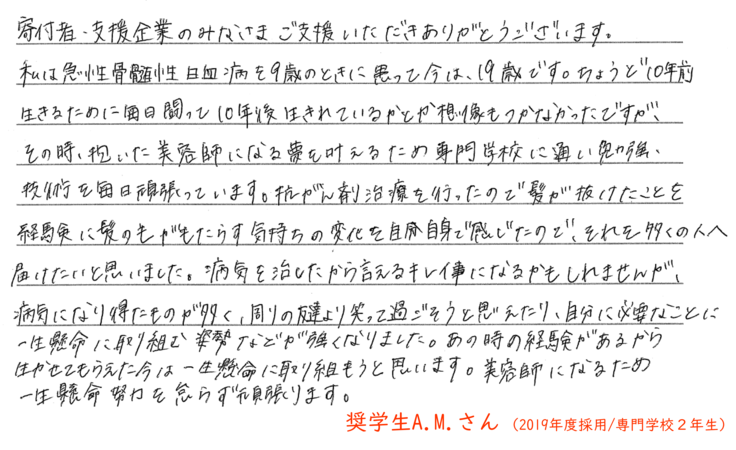 寄付者・支援企業のみなさま ご支援いただきありがとうございます。
私は急性骨髄性白血病を9歳のときに患って今は、19歳です。ちょうど10年前
生きるために毎日闘って10年後生きれているかとか想像もつかなかったですが、
その時、抱いた美容師になる夢を叶えるため専門学校に通い勉強、
技術を毎日頑張っています。抗がん剤治療を行ったので髪が抜けたことを
経験に髪のもがもたらす気持ちの変化を自分自身で感じたので、それを多くの人へ
届けたいと思いました。病気を治したから言えるキレイ事になるかもしれませんが、
病気になり得たものが多く、周りの友達より笑って過ごそうと思えたり、自分に必要なことに
一生懸命に取り組む姿勢などが強くなりました。あの時の経験があるから
生かせてもらえた今は一生懸命に取り組もうと思います。美容師になるため
一生懸命努力を怠らず頑張ります。
奨学生A.M.さん（2019年度採用/専門学校２年生）